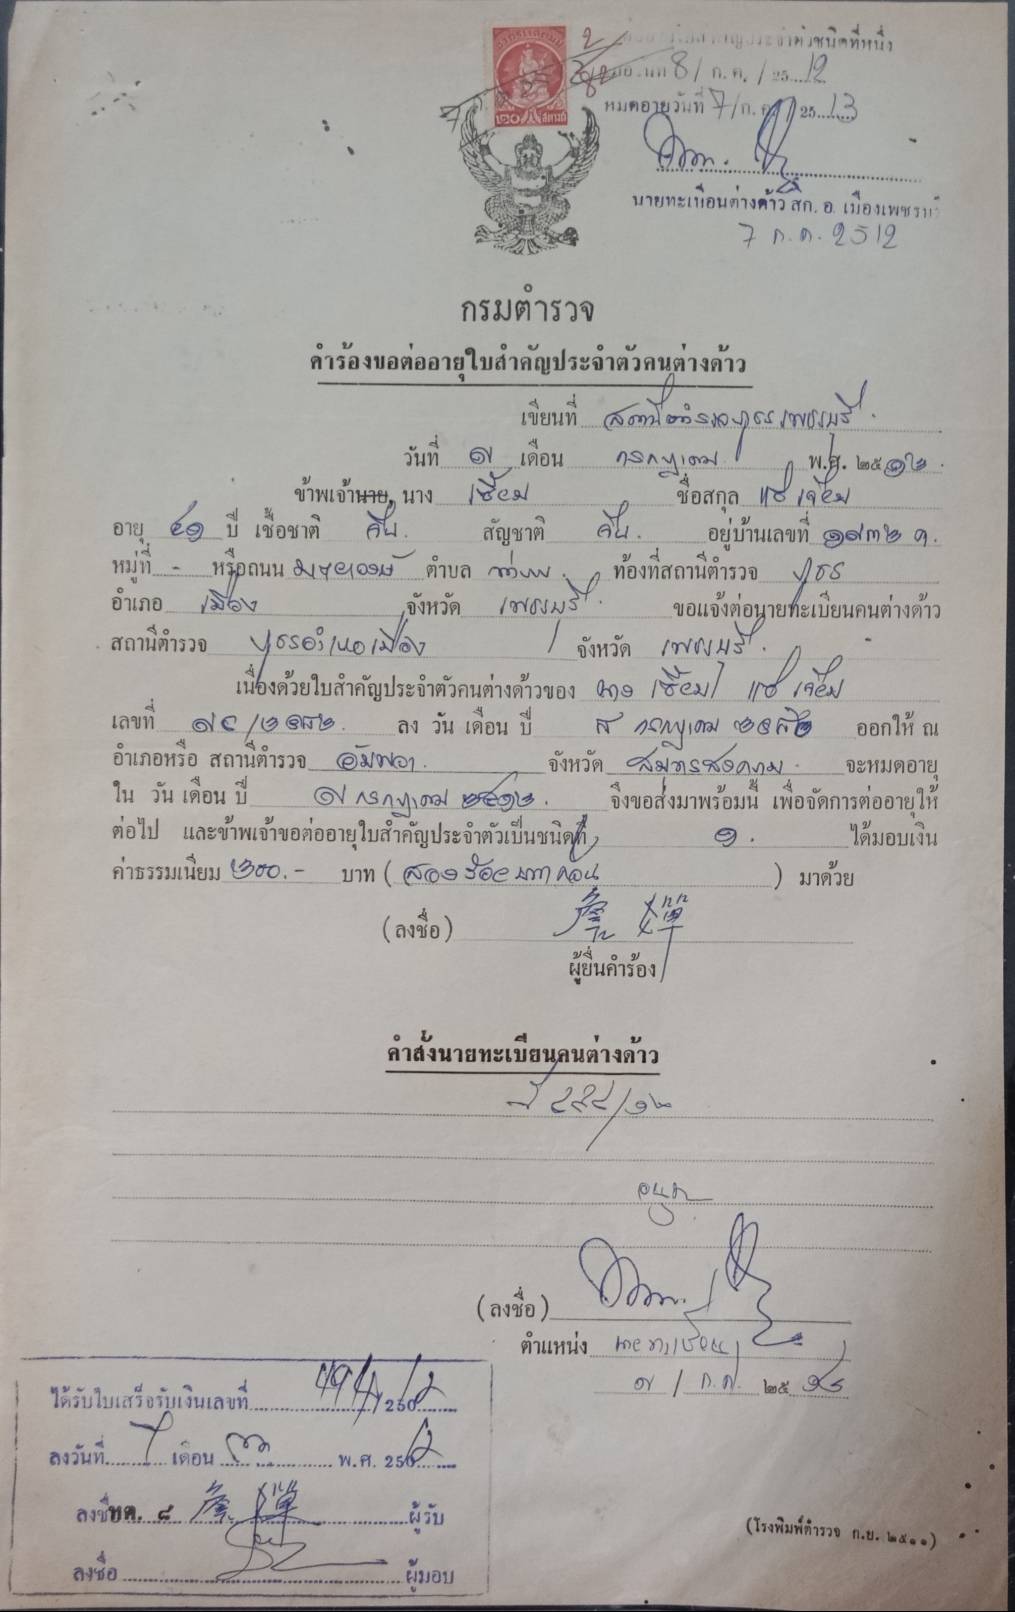 ประจำตัวชนิดที่หนึ่ง
8 / ก.ค. / 25 12
หมดอายุวันที่ 7 / ก.ค. / 25 13
นายทะเบียนต่างด้าว สภ. อ. เมืองเพชรบุรี
7 ก.ค. 2512
๒๐ สตางค์
กรมตำรวจ
คำร้องขอต่ออายุใบสำคัญประจำตัวคนต่างด้าว
เขียนที่ สถานีตำรวจภูธรเพชรบุรี
วันที่ ๗ เดือน กรกฎาคม พ.ศ. ๒๕๑๒
ข้าพเจ้านาย, นาง เซี้ยม ชื่อสกุล แซ่เจียม
อายุ ๔๑ ปี เชื้อชาติ จีน สัญชาติ จีน อยู่บ้านเลขที่ ๑๙๓๒ ค.
หมู่ที่ - หรือถนน ตำบล ท่าทราบ ท้องที่สถานีตำรวจ ภูธร
อำเภอ เมือง จังหวัด เพชรบุรี ขอแจ้งต่อนายทะเบียนคนต่างด้าว
สถานีตำรวจ ภูธรอำเภอเมือง จังหวัด เพชรบุรี
เนื่องด้วยใบสำคัญประจำตัวคนต่างด้าวของ นาง เซี้ยม แซ่เจียม
เลขที่ ๗๔/๒๔๙๒ ลง วัน เดือน ปี ๘ กรกฎาคม ๒๔๙๒ ออกให้ ณ
อำเภอหรือ สถานีตำรวจ อัมพวา จังหวัด สมุทรสงคราม จะหมดอายุ
ใน วัน เดือน ปี ๗ กรกฎาคม ๒๕๑๒ จึงขอส่งมาพร้อมนี้ เพื่อจัดการต่ออายุให้
ต่อไป และข้าพเจ้าขอต่ออายุใบสำคัญประจำตัวเป็นชนิดที่ ๑. ได้มอบเงิน
ค่าธรรมเนียม ๒๐๐.- บาท (สองร้อยบาทถ้วน) มาด้วย
(ลงชื่อ) 詹 嬋
ผู้ยื่นคำร้อง
คำสั่งนายทะเบียนคนต่างด้าว
อนุญาต
(ลงชื่อ)
ตำแหน่ง นายทะเบียน
๗ / ก.ค. ๒๕ ๑๒
ได้รับใบเสร็จรับเงินเลขที่ 250
ลงวันที่ 7 เดือน พ.ศ. 250
ลงชื่อ ทต. ๘ 詹 嬋 ผู้รับ
ลงชื่อ ผู้มอบ
(โรงพิมพ์ตำรวจ ก.ย. ๒๕๑๑)